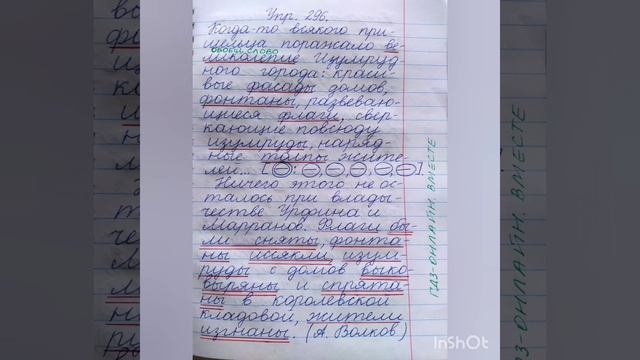 Упр. 296.
Когда-то всякого при-
шельца поражало ве-
обобщ. слово
ликолепие Изумруд
ного города: краси-
вые фасады домов,
фонтаны, развеваю-
щиеся флаги, свер-
кающие повсюду
изумруды, наряд-
ные толпы жите-
лей... [
Ничего этого не ос-
талось при влады-
честве Урфина и
Марранов. Флаги бы-
ли сняты, фонта-
ны иссякли, изум-
руды с домов выко-
выряны и спрята-
ны в королевской
кладовой, жители
изгнаны. (А. Волков)
ГДЗ-ОНЛАЙН. ВМЕСТЕ
InShOt